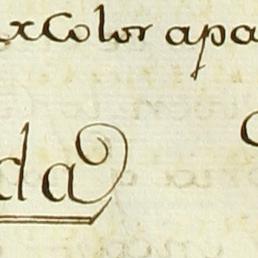 color apa
da